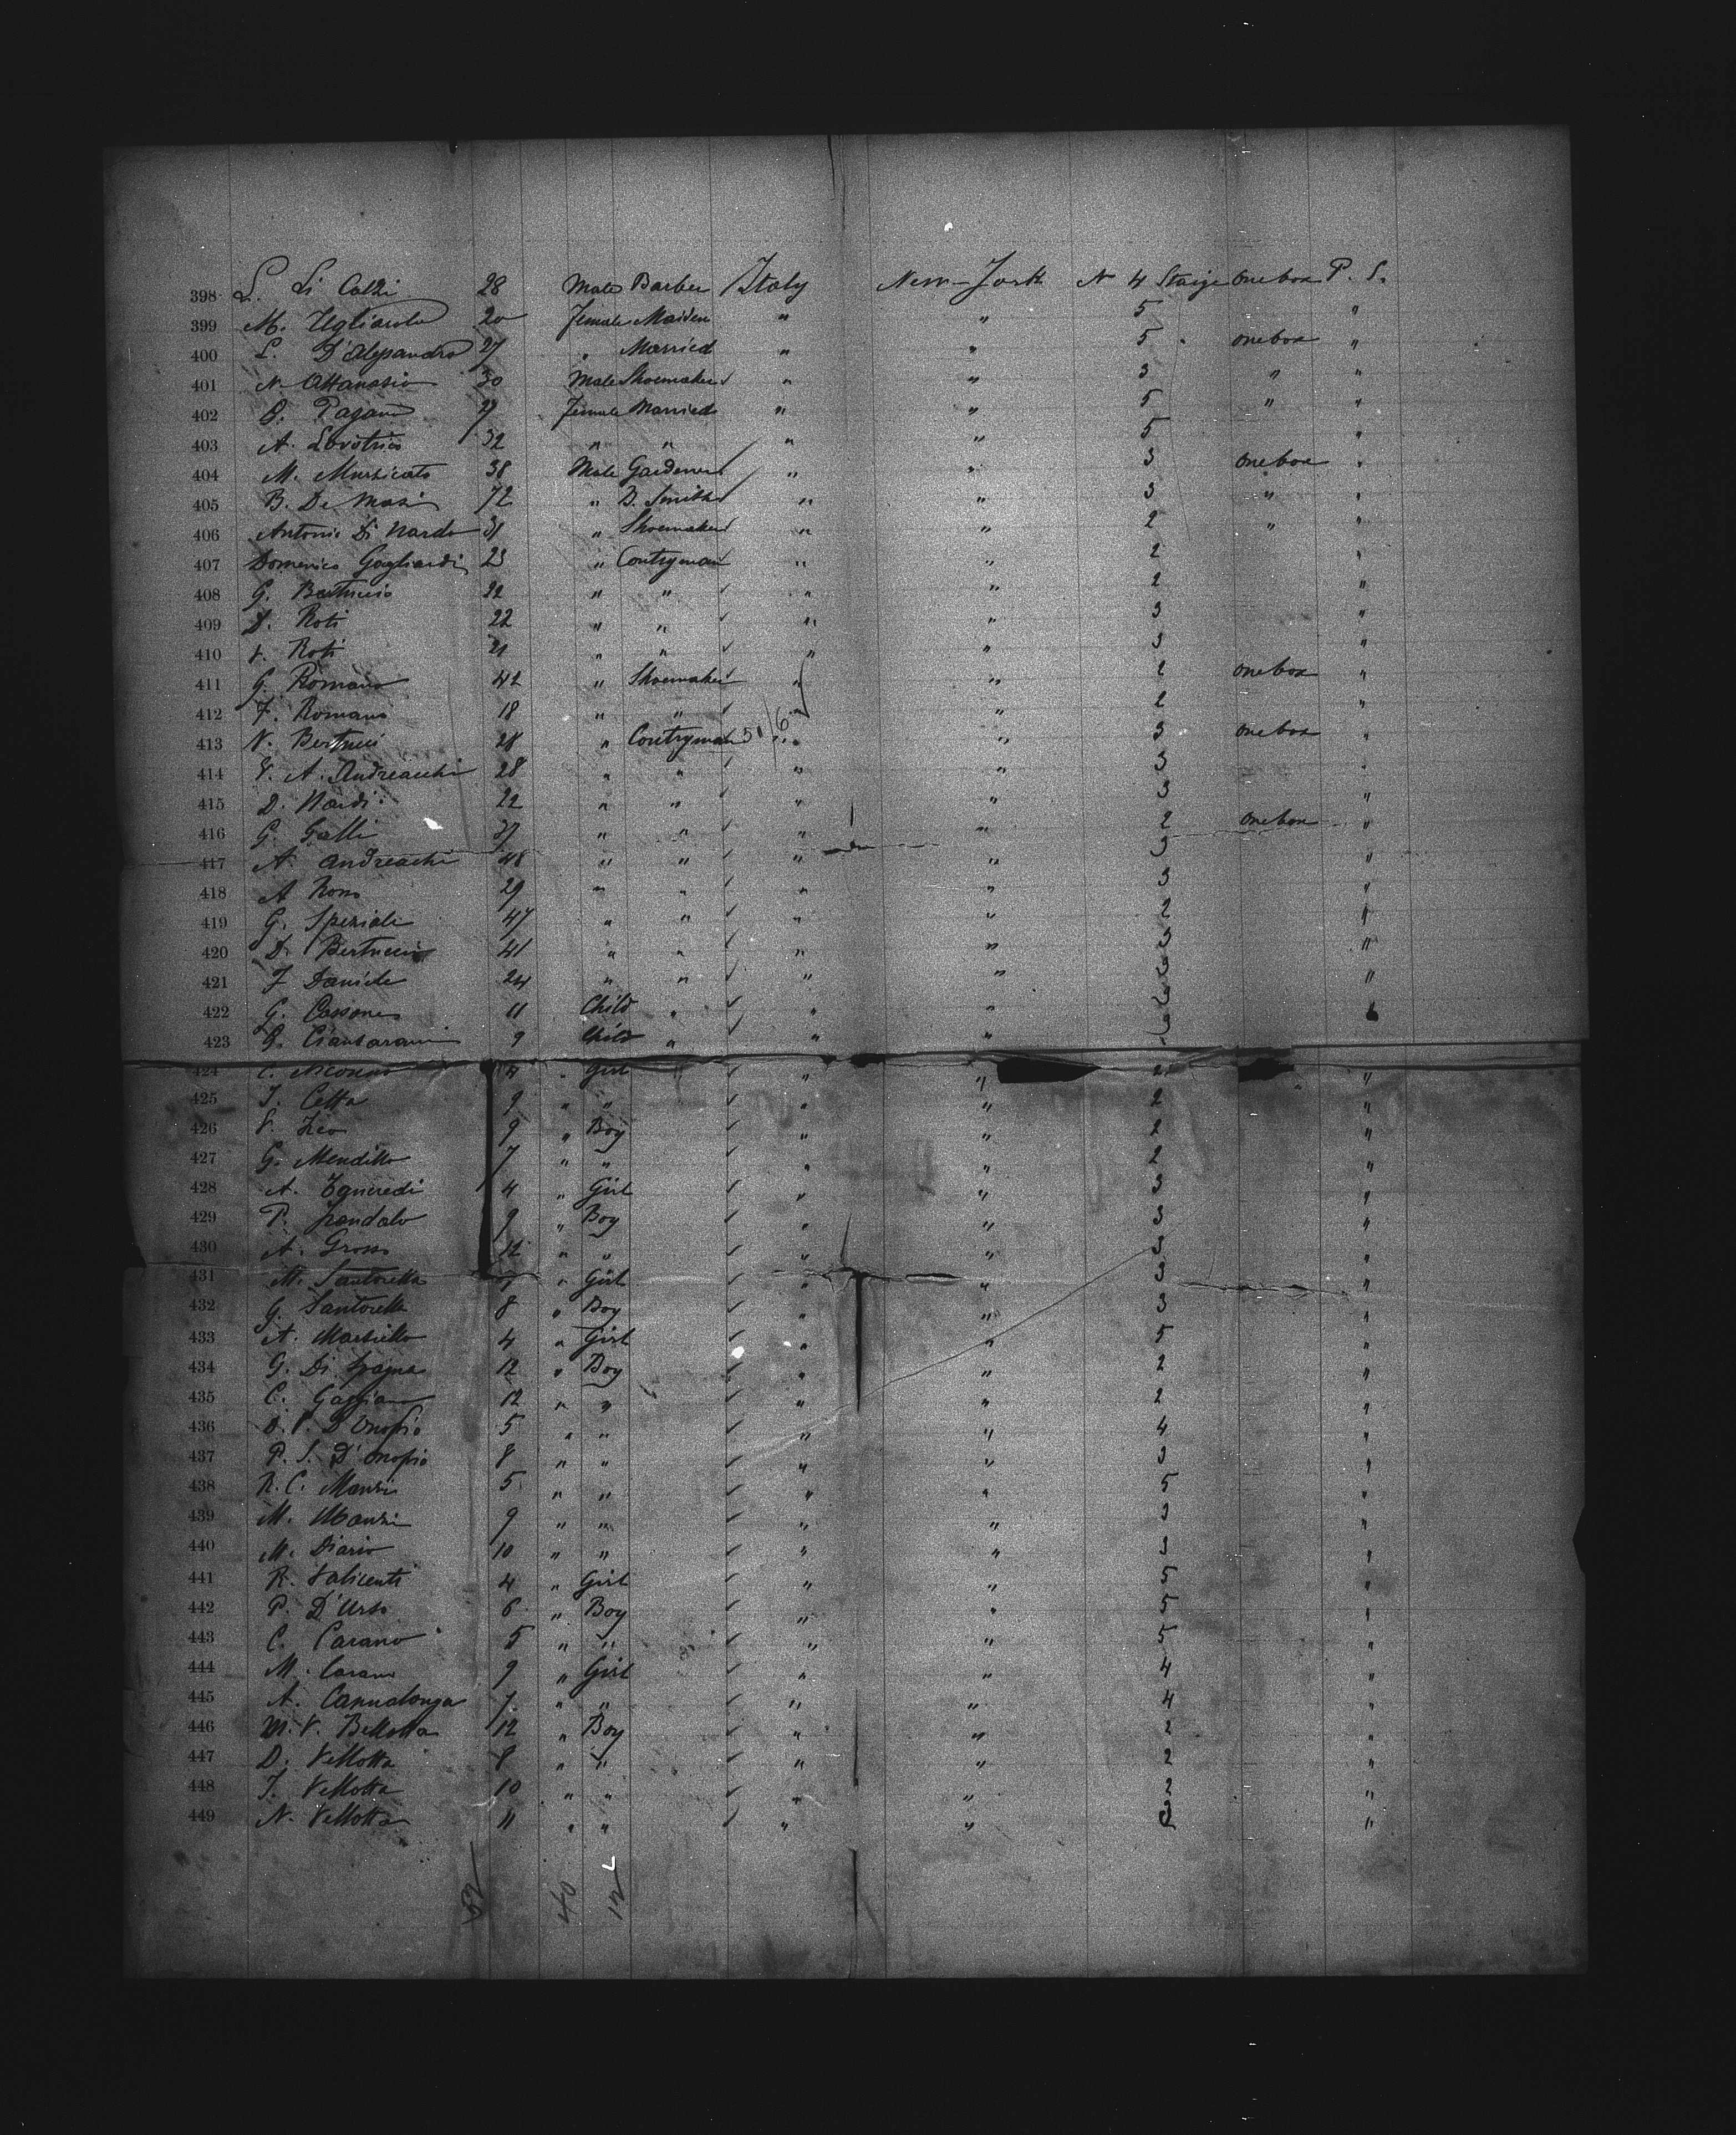 398 L. Li Calzi 28 Male Barber Italy New-York N 4 Staige one box P. S.
399 M. Ugliarolo 20 female Maiden " " 5 "
400 L. D'Alessandro 27 " Married " " 5 one box "
401 N. Attanasio 30 Male Shoemaker " " 3 " "
402 G. Pagano 27 female Married " " 5 " "
403 A. 32 " " " " 5 "
404 M. Mursicato 38 Male Gardener " " 3 one box "
405 B. De Masi 72 " B. Smith " " 3 " "
406 Antonio Di Nardo 31 " Shoemaker " " 2 " "
407 Domenico Gagliardi 23 " Contryman " " 2 "
408 G. Bertuccio 22 " " " " 2 "
409 D. Roti 22 " " " " 3 "
410 V. Roti 21 " " " " 3 "
411 G. Romano 42 " Shoemaker " " 2 one box "
412 F. Romano 18 " " " " 2 "
413 V. Bertucci 28 " Contryman " " 3 one box "
414 V. A. Andreacchi 28 " " " " 3 "
415 D. Nardi 22 " " " " 3 "
416 G. Galli 37 " " " " 2 one box "
417 A. Andreachi 48 " " " " 3 "
418 A 29 " " " " 3 "
419 G. Speziale 47 " " " " 2 "
420 D. Bertuccio 41 " " " " 3 "
421 F Daniele 24 " " " " 3 "
422 G. Cassone 11 Child " " "
423 G. 9 Child " " "
424 C. 4 " Girl " " 2 "
425 T. Cetta 9 " " " " 2 "
426 V. Leo 9 " Boy " " 2 "
427 G. Mendillo 7 " " " " 2 "
428 A. Tancredi 4 " Girl " " 3 "
429 P. 9 " Boy " " 3 "
430 A. Grosso 12 " " " " 3 "
431 M. Santorella " Girl " " 3 "
432 G. Santorella 8 " Boy " " 3 "
433 A. Marsiello 4 " Girl " " 5 "
434 G. Di 12 " Boy " " 2 "
435 C. Gaggiano 12 " " " " 2 "
436 D. V. D'Onofrio 5 " " " " 4 "
437 P. S. D'Onofrio 8 " " " " 3 "
438 R. C. Manzi 5 " " " " 5 "
439 M. Manzi 9 " " " " 3 "
440 M. Diario 10 " " " " 3 "
441 R. Valicenti 4 " Girl " " 5 "
442 P. D'Urso 6 " Boy " " 5 "
443 C. Carano 5 " " " " 5 "
444 M. Carano 9 " Girl " " 4 "
445 A. Capudonga 7 " " " " 4 "
446 M. V. Bellotta 12 " Boy " " 2 "
447 D. Vellotta 8 " " " " 2 "
448 T. Vellotta 10 " " " " 2 "
449 N. Vellotta 11 " " " " 2 "
52 40 12